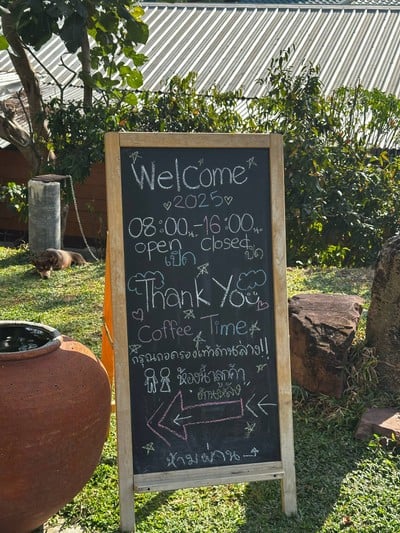 Welcome
2025
08:00น.-16:00น.
open closed
เปิด ปิด
Thank You
Coffee Time
กรุณาถอดรองเท้าด้านล่าง!!
ห้องน้ำลูกค้า
ด้านหลัง
ห้ามผ่าน